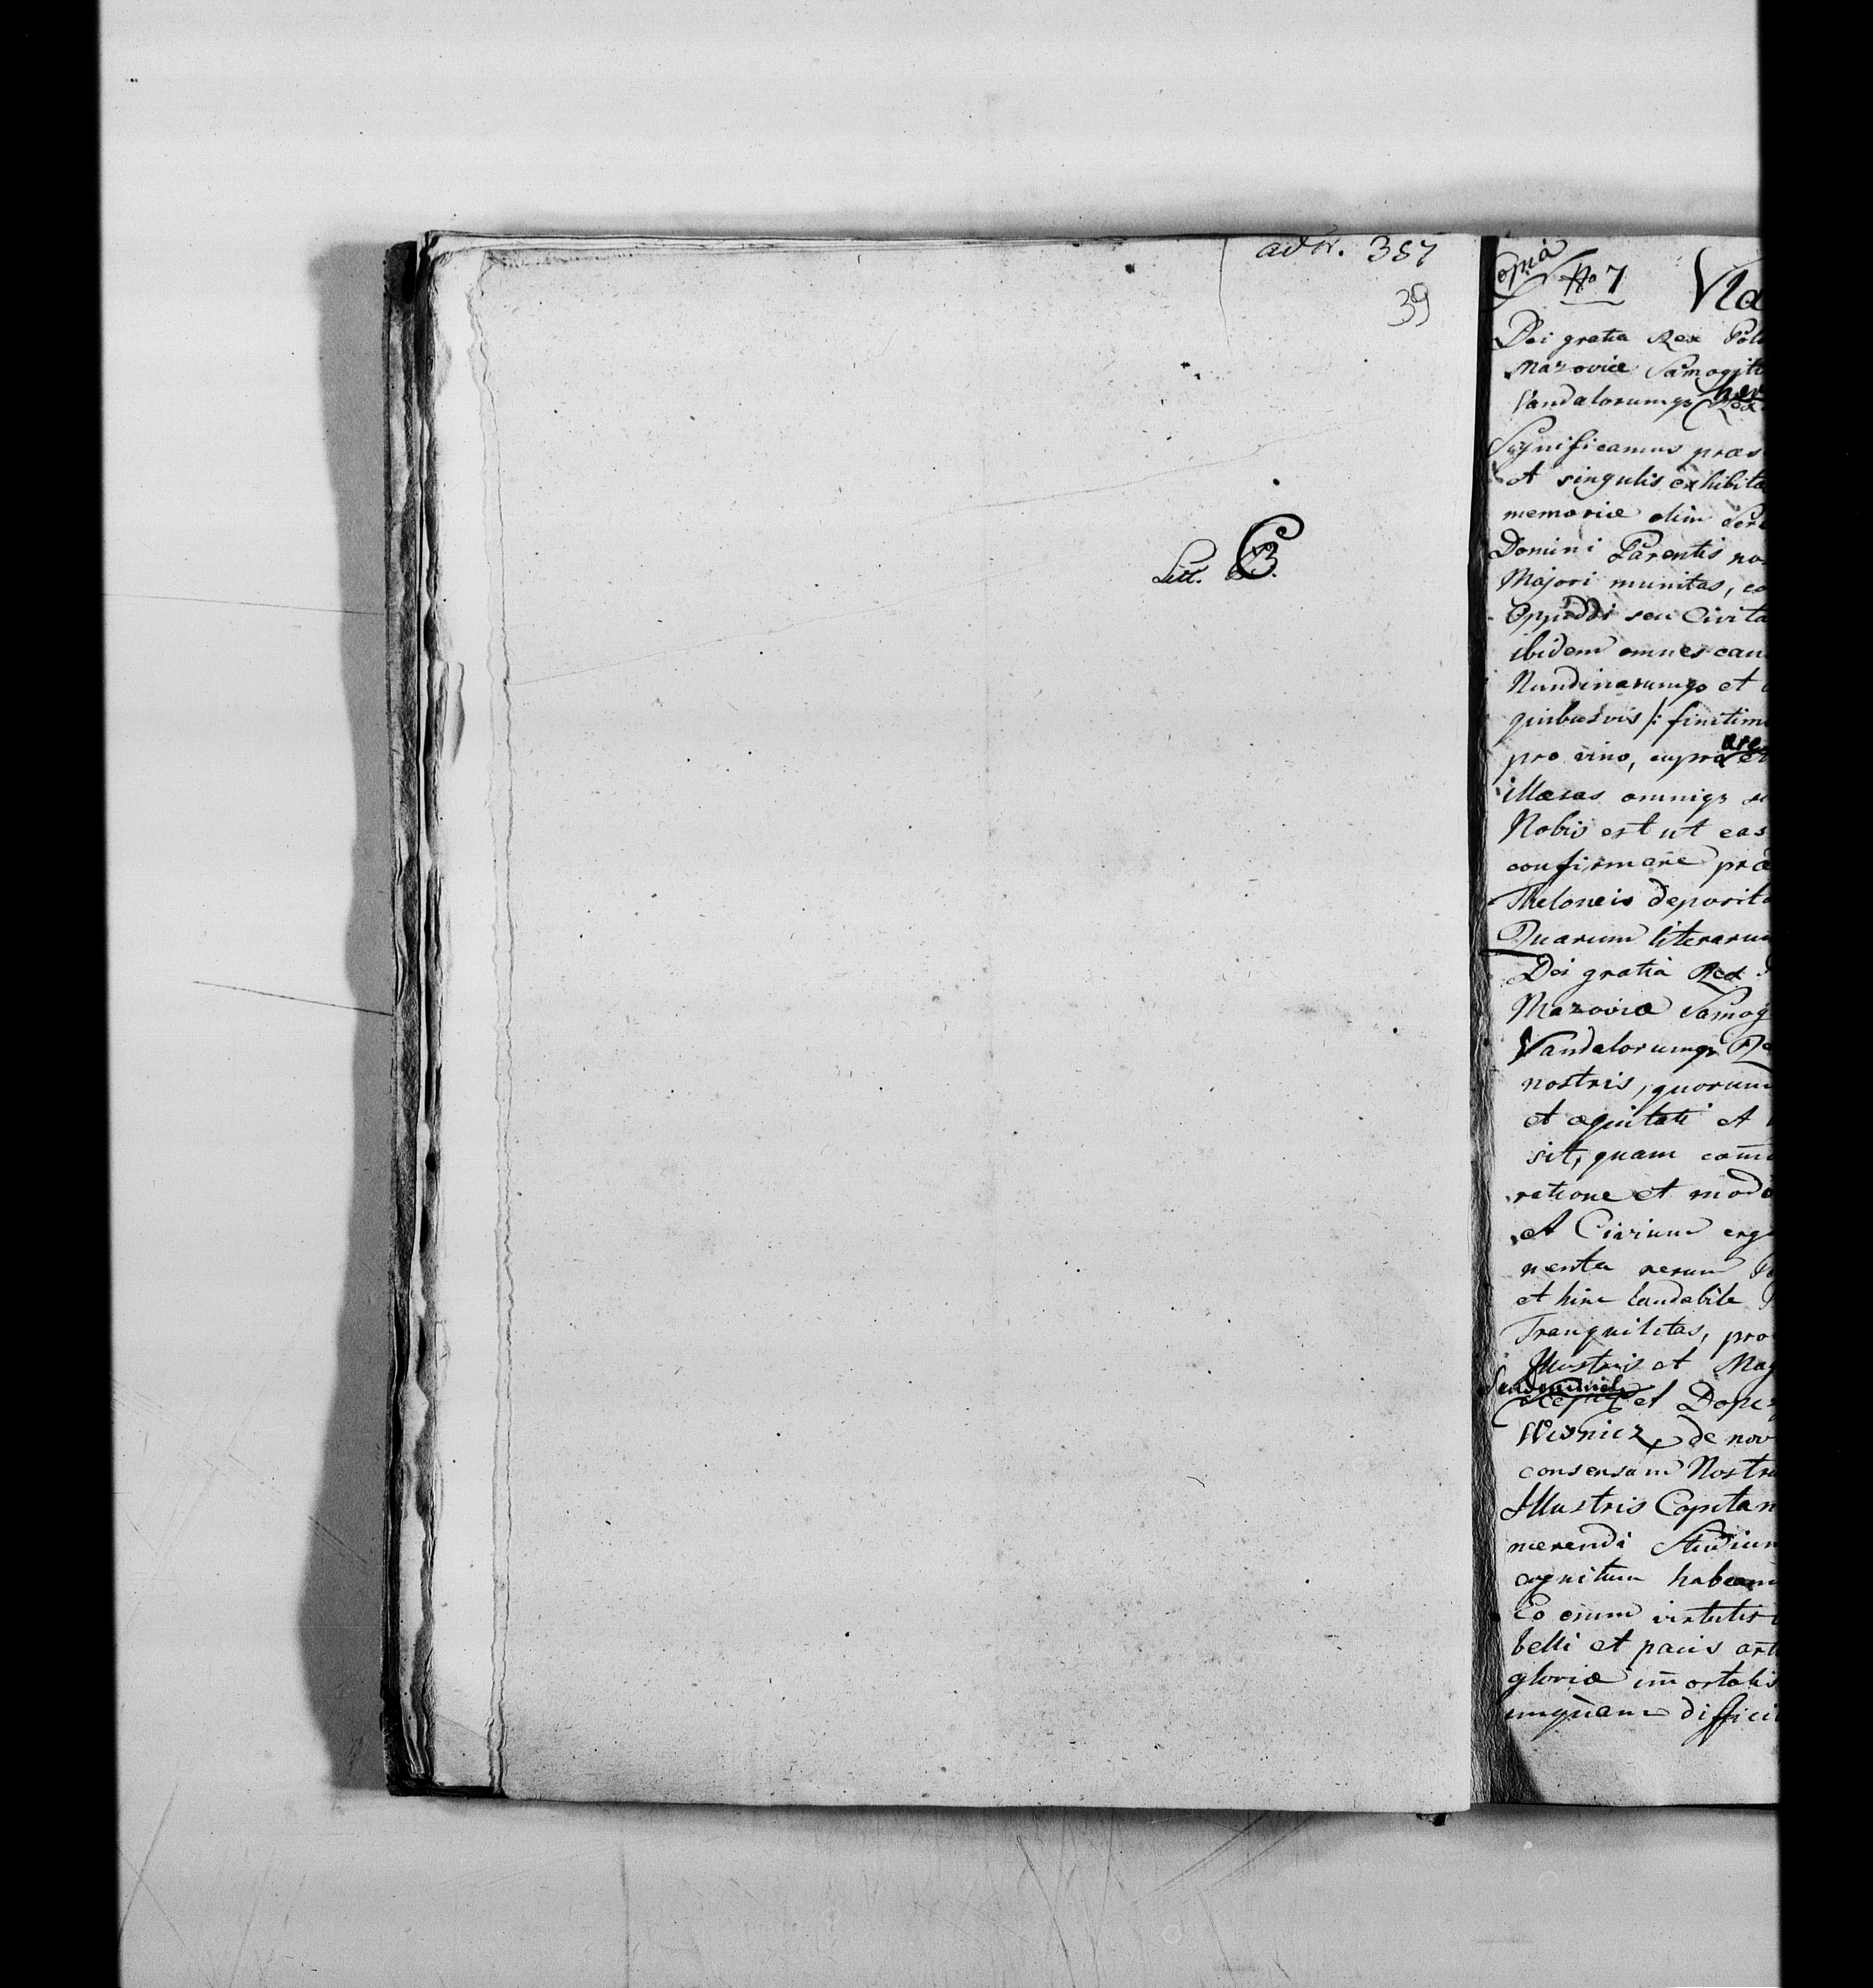 ad N. 357
39
Litt. B.
Copia No 7 Vla
Dei gratia Rex Polo
Mazoviæ Samogiti
Vandalorumqz her Rex
Significamus præs
et singulis exhibita
memoriæ olim Sere
Domini Parentis no
Majori munitas, co
Oppiddi seu Civita
ibidem omnes cau
Nundinarumqz et
quibusvis /: finitim
pro vino, cupro et
illæsas omniqz su
Nobis est ut eas
confirmare præ
Theloneis deposit
Quarum literarum
Dei gratia Rex
Mazoviæ Samog
Vandalorumqz Re
nostris, quorum
et æquitati et
sit, quam com̄
ratione et modo
et Civium erg
menta rerum
et hinc laudabile
Tranquilitas, pro
Illustris et Mag
Sendomiri
et Dopcz
Wisnicz, de nov
consensum Nostru
Illustris Capitan
merendi Studium
cognitum habeam
Eo enim virtutis
belli et pacis art
gloriæ im̄ortalis
unquam difficil